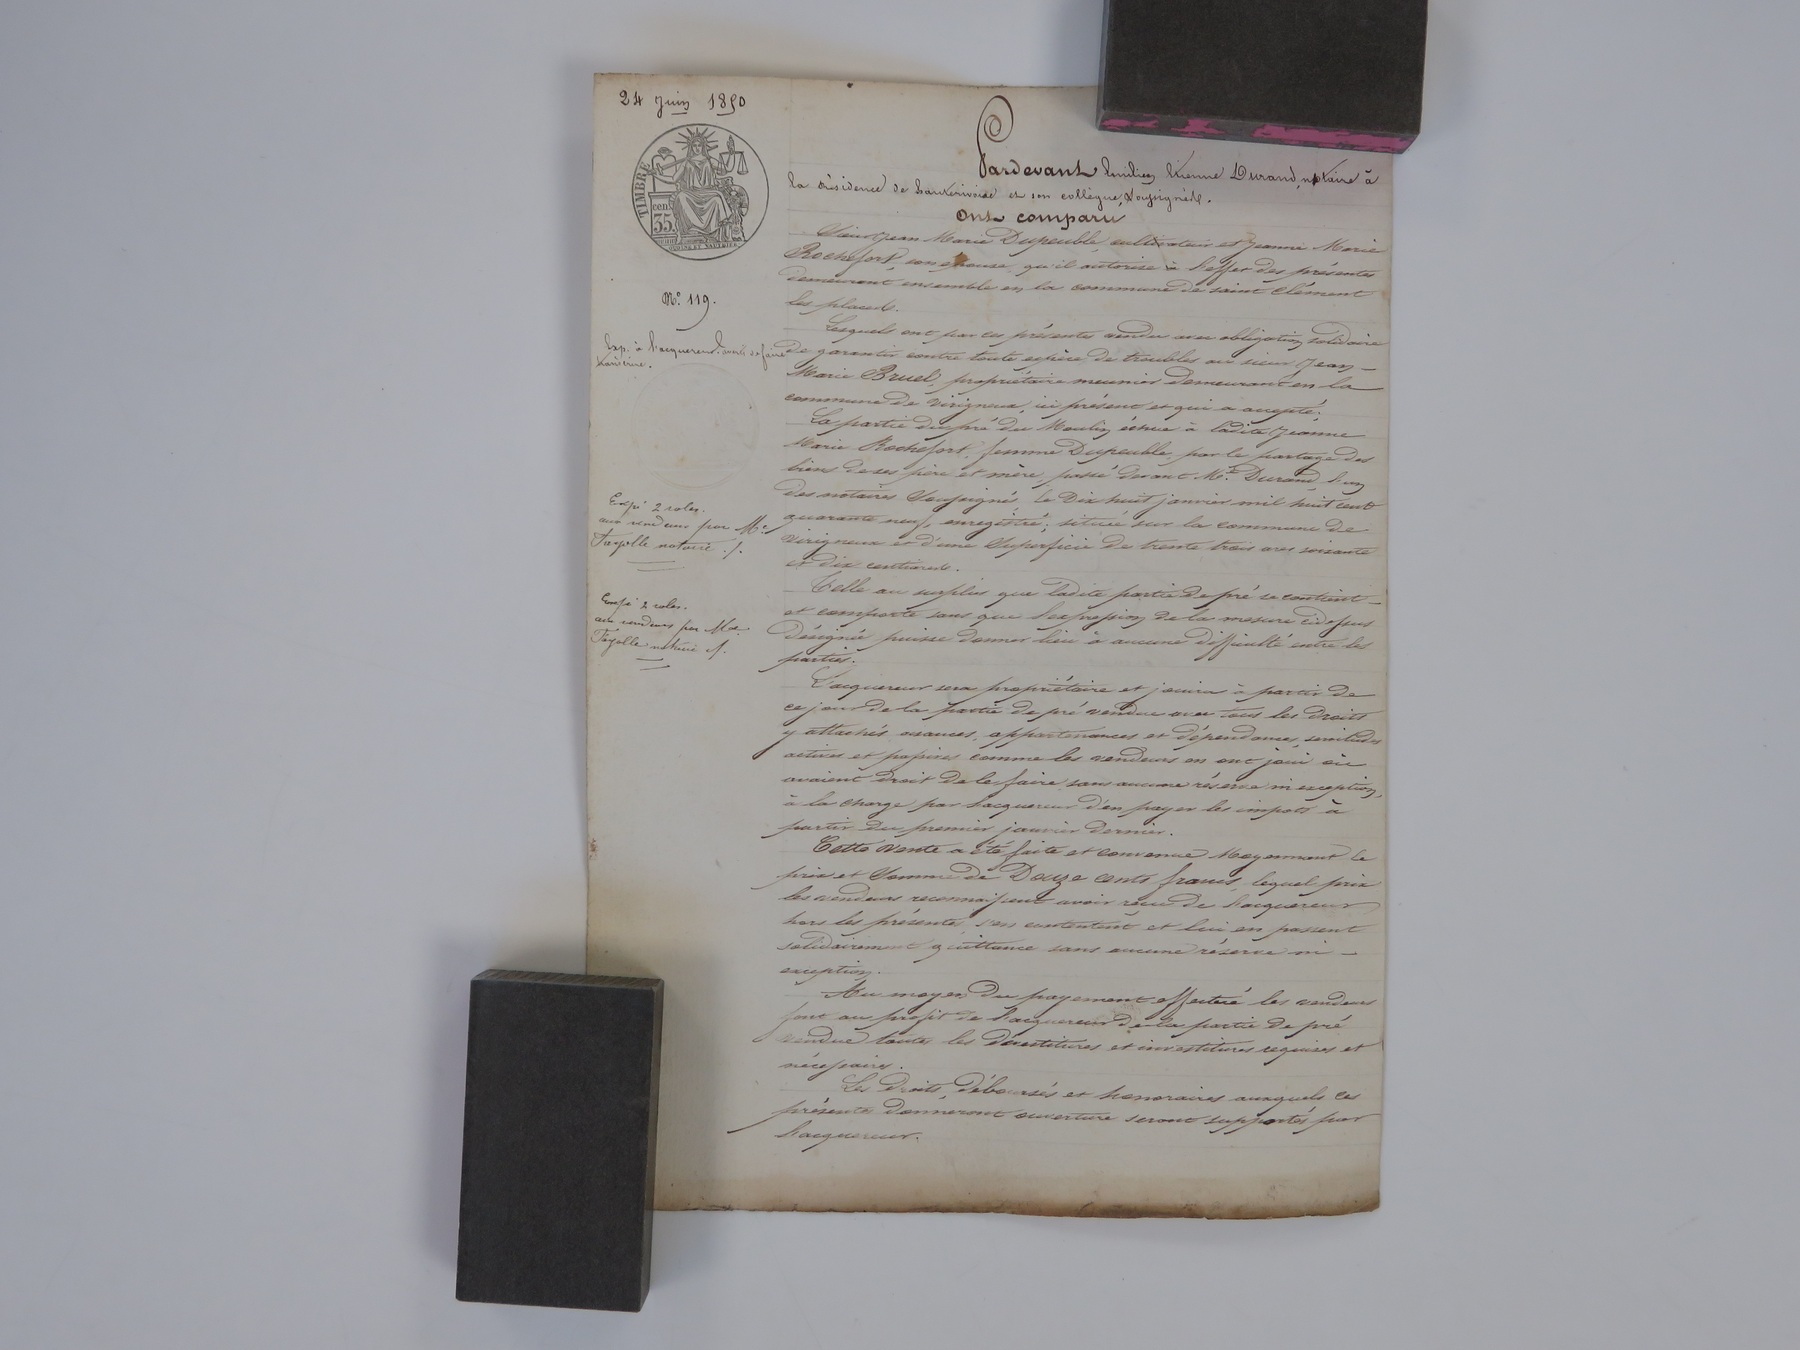 24 Juin 1850
TIMBRE
35 cent
N° 119.
Exp. à l'acquereur
Expé 2 roles.
aux vendeurs par Me
Fayolle notaire ./.
Expé 2 roles.
aux vendeurs par Me
Fayolle notaire ./.
Pardevant Emilien Etienne Durand, notaire à
la résidence de hauterivoire et son collègue, Soussignés.
Ont comparu
Sieur Jean Marie Dupeuble, cultivateur et Jeanne Marie
Rochefort, son épouse, qu'il autorise à l'effet des présentes
demeurant ensemble en la commune de saint Clément
les places.
Lesquels ont par ces présentes vendu avec obligation solidaire
de garantir contre toute espèce de troubles au sieur Jean-
Marie Bruel, propriétaire meunier demeurant en la
commune de virigneux, ici présent et qui a accepté.
La partie du pré du Moulin échue à ladite Jeanne
Marie Rochefort, femme Dupeuble, par le partage des
biens de ses père et mère, passé devant Me Durand, l'un
des notaires Soussignés, le Dix huit janvier mil huit cent
quarante neuf, enregistré, située sur la commune de
virigneux et d'une Superficie de trente trois ares soixante
et dix centiares.
Telle au surplus que ladite partie de pré se contient
et comporte sans que l'expression de la mesure cidessus
désignée puisse donner lieu à aucune difficulté entre les
parties.
L'acquereur sera propriétaire et jouira à partir de
ce jour de la partie de pré vendue avec tous les droits
y attachés, aisances, appartenances et dépendances, servitudes
actives et passives comme les vendeurs en ont joui ou
avaient droit de le faire sans aucune réserve ni exception,
à la charge par l'acquereur d'en payer les impots à
partir du premier janvier dernier.
Cette vente a été faite et convenue Moyennant le
prix et Somme de Douze cents francs, lequel prix
les vendeurs reconnaissent avoir reçu de l'acquereur
hors les présentes, s'en contentent et lui en passent
solidairement quittance sans aucune réserve ni -
exception.
Au moyen du payement effectué les vendeurs
font au profit de l'acquereur de la partie de pré
vendue toutes les dévestitures et investitures requises et
nécessaires.
Les droits, déboursés et honoraires auxquels ces
présentes donneront ouverture seront supportés par
l'acquereur.